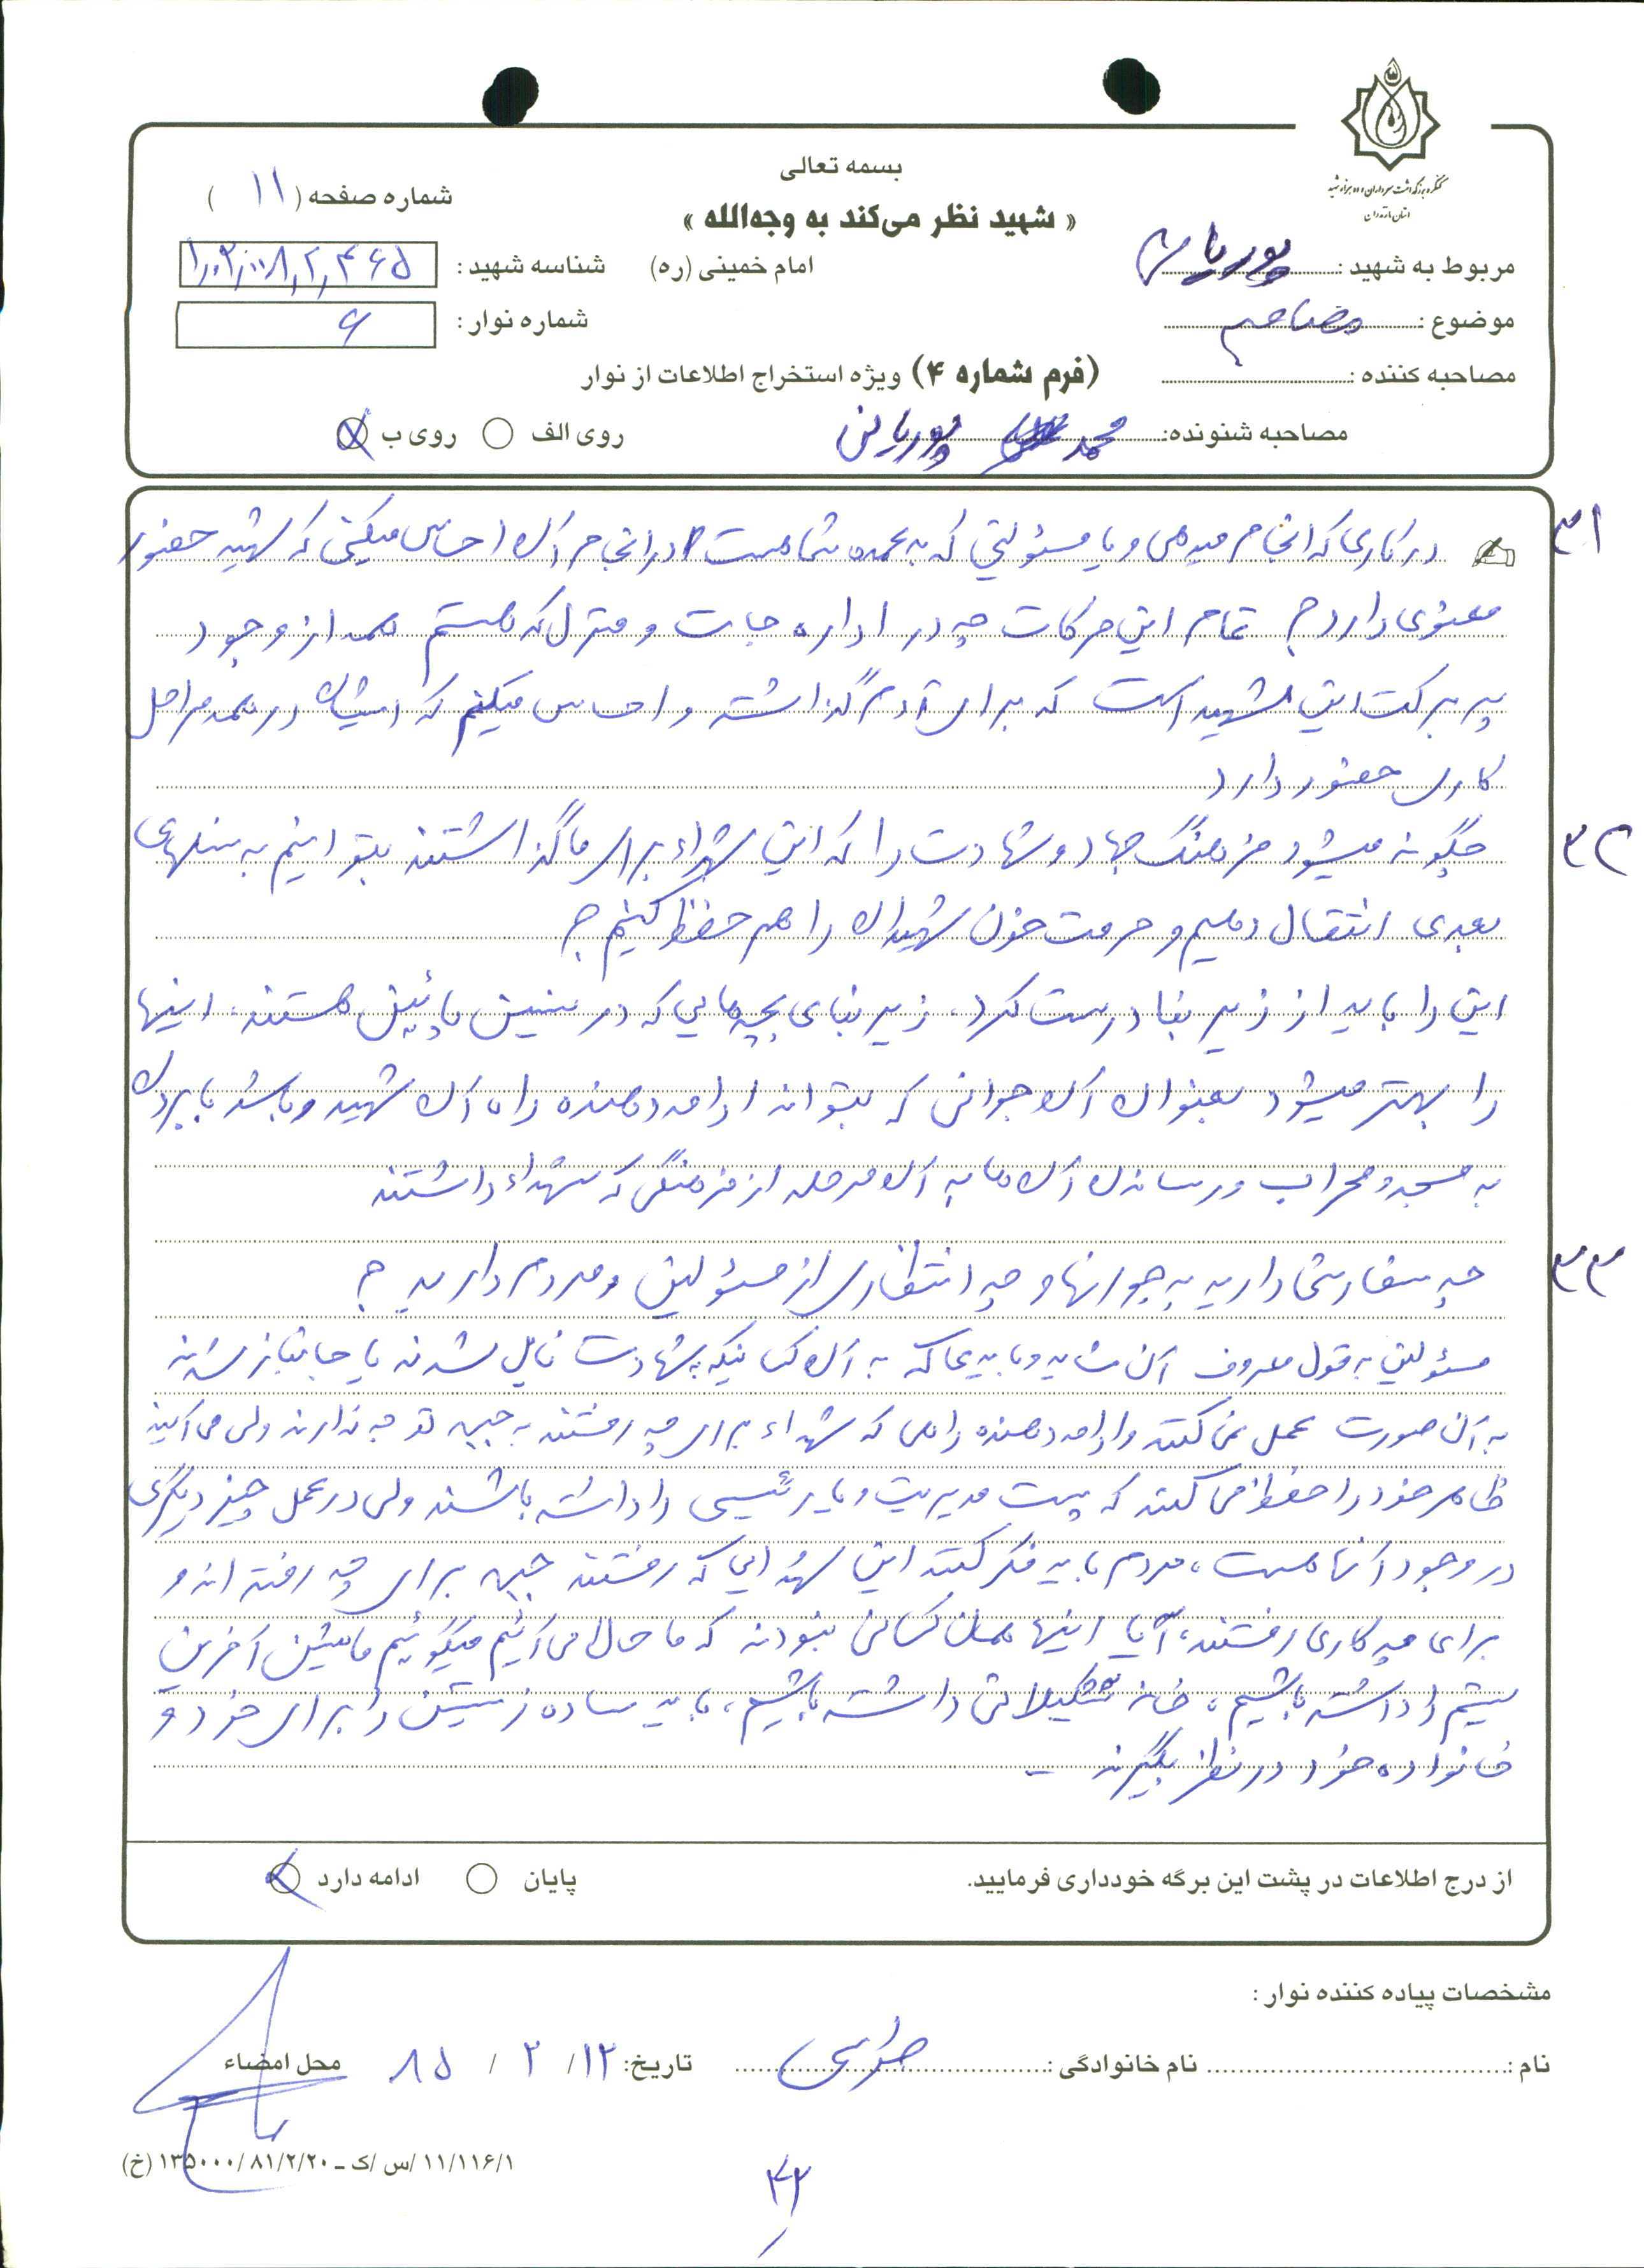 کنگره بزرگداشت سرداران و ده هزار شهید
استان مازندران
بسمه تعالی
« شهید نظر می‌کند به وجه‌الله »
امام خمینی (ره)
شماره صفحه ( ۱۱ )
مربوط به شهید : پوریانی
شناسه شهید :
موضوع : مصاحبه
شماره نوار : ۶
مصاحبه کننده :
(فرم شماره ۴) ویژه استخراج اطلاعات از نوار
مصاحبه شنونده: محمد پوریانی
روی الف روی ب
۳۱ در کاری که انجام میدهی و یا مسئولیتی که به عهده شما هست در انجام آن احساس میکنی که شهید حضور
معنوی دارد ؟ تمام این حرکات چه در اداره جات و منزل که هستم همه از وجود
پر برکت این شهید است که برای گذاشته و احساس میکنم که ایشان در همه مراحل
کاری حضور دارد
۳۲ چگونه میشود فرهنگ جهاد و شهادت را که این شهداء برای ما گذاشتند بتوانیم به نسلهای
بعدی انتقال دهیم و حرمت خون شهیدان را هم حفظ کنیم ؟
این را باید از زیر بنا درست کرد، زیر بنای بچه هایی که در سنین پائین هستند، اینها
را بهتر میشود بعنوان آن جوانی که بتواند ادامه دهنده راه آن شهید و باشد با بردن
به مسجد و محراب و رساندن آن ها به آن مرحله از فرهنگی که شهداء داشتند
۳۳ چه سفارشی دارید به جوانها و چه انتظاری از مسئولین و مردم دارید ؟
مسئولین به قول معروف آن شاید و باید ها که به آن کسانیکه بشهادت نایل شدند یا جانباز شدند
به آن صورت عمل نمی کنند و ادامه دهنده راهی که شهداء برای چه رفتند به جبهه توجه ندارند ولی می آیند
ظاهر خود را حفظ می کنند که پست مدیریت و یا رئیسی را داشته باشند ولی در عمل چیز دیگری
در وجود آنها هست، مردم باید فکر کنند این شهدایی که رفتند جبهه برای چه رفته اند و
برای چه کاری رفتند، آیا اینها همان کسانی نبودند که ما حالا می آئیم میگوئیم ماشین آخرین
سیستم را داشته باشیم، خانه تشکیلاتی داشته باشیم، باید ساده زیستن را برای خود و
خانواده خود در نظر بگیرند -
از درج اطلاعات در پشت این برگه خودداری فرمایید.
پایان ادامه دارد
مشخصات پیاده کننده نوار :
نام : نام خانوادگی : تاریخ: ۱۲ / ۲ / ۸۵ محل امضاء
۱۱/۱۱۶/۱ /س /ک ـ ۸۱/۲/۲۰ /۱۳۵۰۰۰ (خ)
۴۲